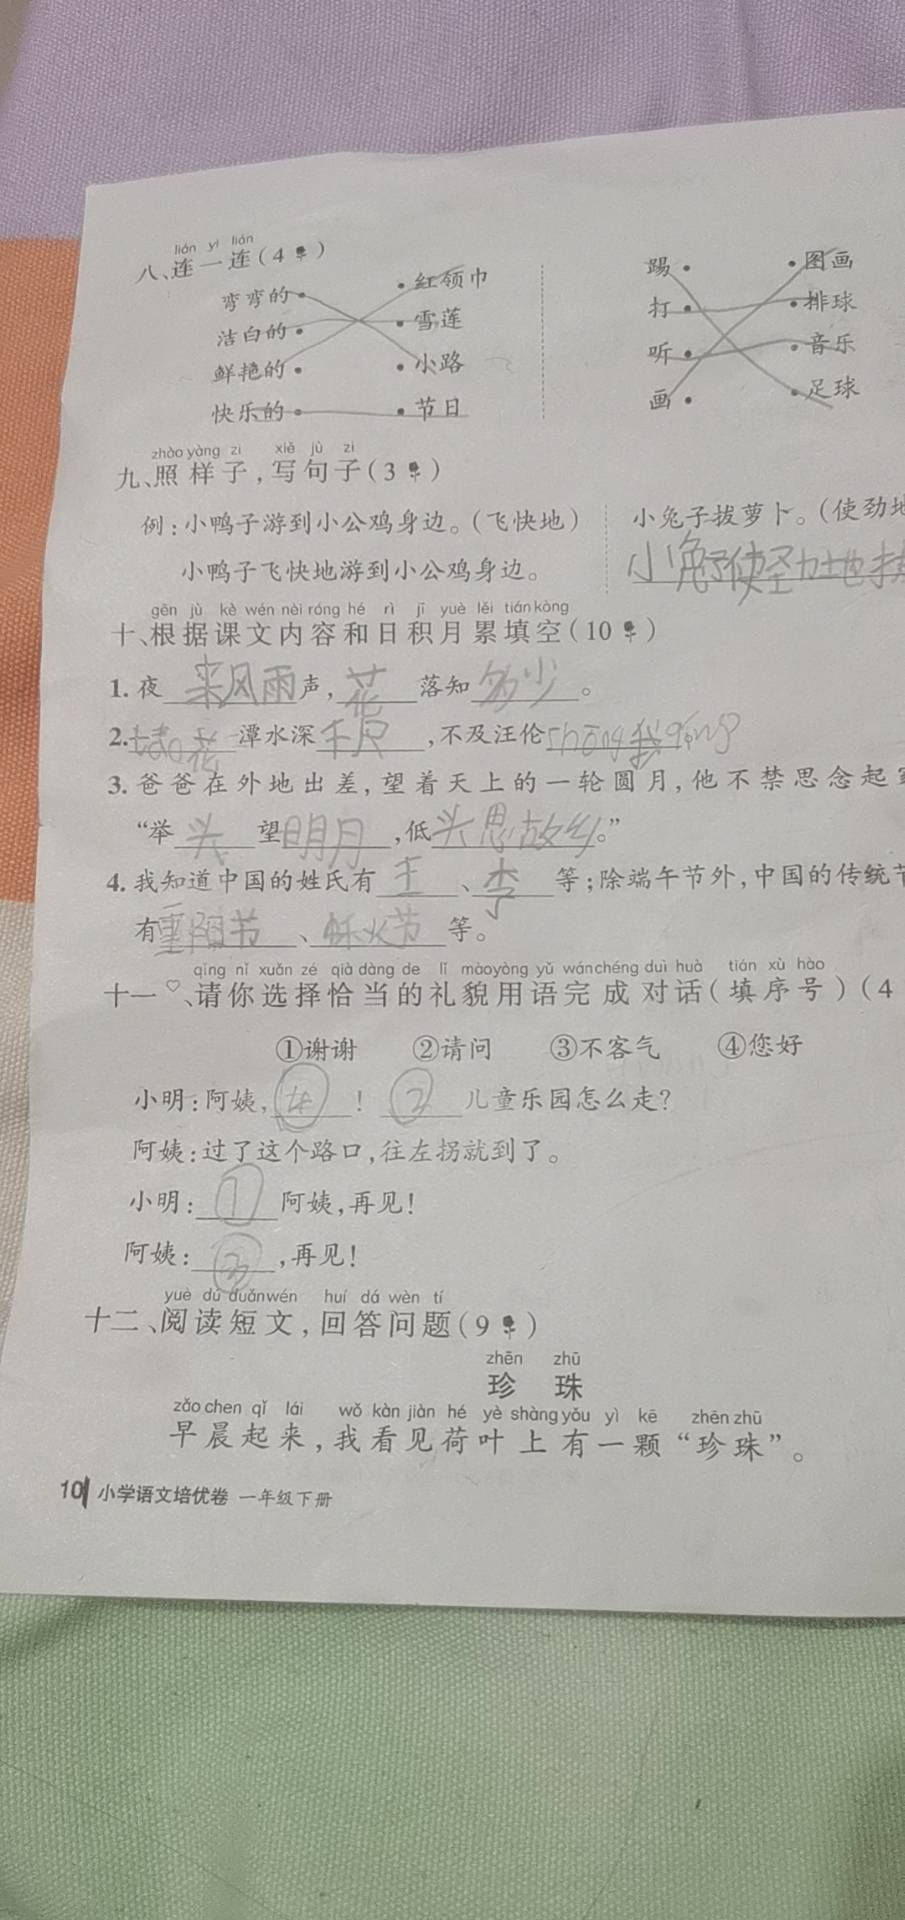 lián yi lián
八、连一连(4 )
弯弯的 红领巾 踢 图画
洁白的 雪莲 打 排球
鲜艳的 小路 听 音乐
快乐的 节日 画 足球
zhào yàng zi xiě jù zi
九、照样子,写句子(3 )
例:小鸭子游到小公鸡身边。(飞快地) 小兔子拔萝卜。(使劲地
小鸭子飞快地游到小公鸡身边。 小兔子使劲地拔
gēn jù kè wén nèi róng hé rì jī yuè lěi tián kòng
十、根据课文内容和日积月累填空(10 )
1. 夜来风雨声,花落知多少。
2. táo花 潭水深千尺,不及汪伦 我qíng
3. 爸爸在外地出差,望着天上的一轮圆月,他不禁思念起
“举头 望明月,低头思故乡。”
4. 我知道中国的姓氏有王、李等;除端午节外,中国的传统节
有重阳节、 节等。
qǐng nǐ xuǎn zé qià dàng de lǐ mào yòng yǔ wán chéng duì huà tián xù hào
十一♡、请你选择恰当的礼貌用语完成对话(填序号)(4
①谢谢 ②请问 ③不客气 ④您好
小明:阿姨,④! ②儿童乐园怎么走?
阿姨:过了这个路口,往左拐就到了。
小明:①阿姨,再见!
阿姨:③,再见!
yuè dú duǎn wén huí dá wèn tí
十二、阅读短文,回答问题(9 )
zhēn zhū
珍珠
zǎo chen qǐ lái wǒ kàn jiàn hé yè shàng yǒu yì kē zhēn zhū
早晨起来,我看见荷叶上有一颗“珍珠”。
10 小学语文培优卷 一年级下册